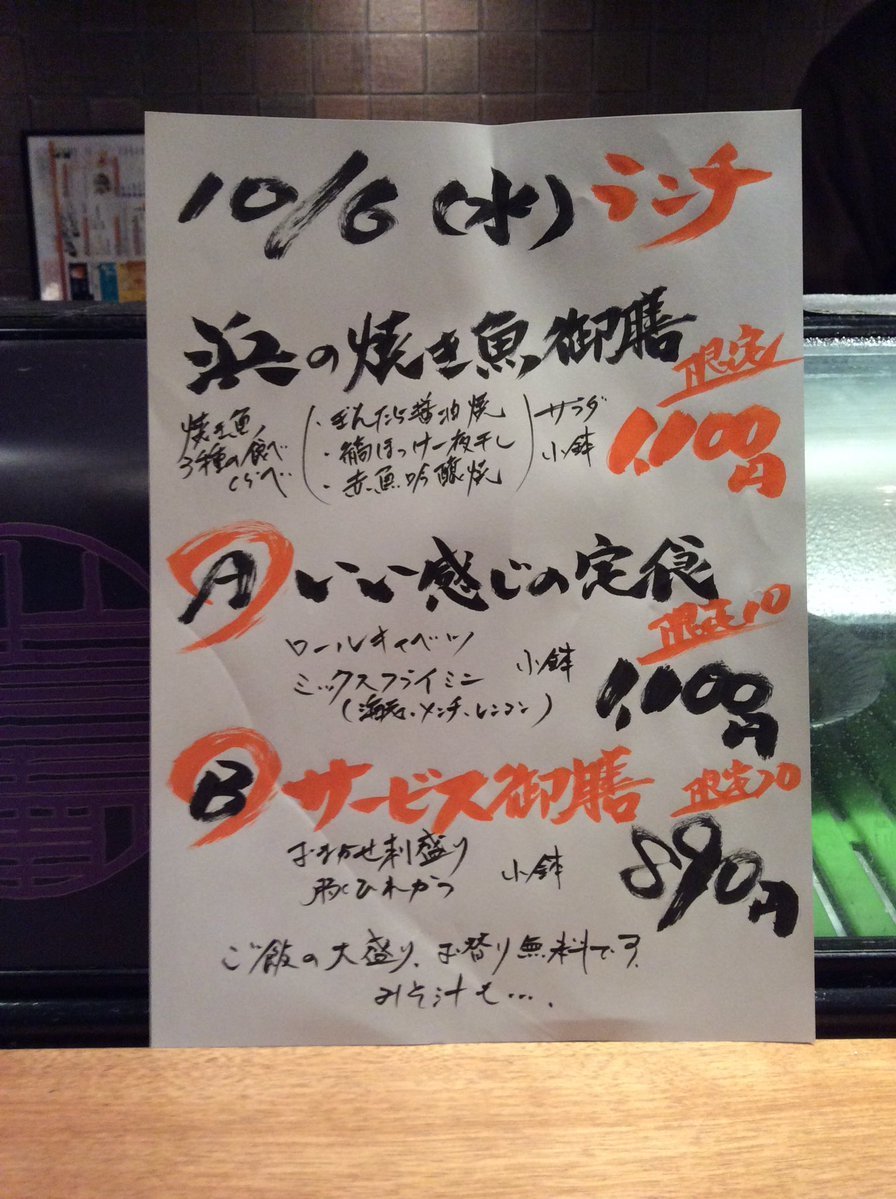 10/6 (水) ランチ
浜の焼き魚御膳 限定
焼き魚 3種の食べくらべ
・ぎんだら醤油焼
・縞ほっけ一夜干し
・赤魚吟醸焼
サラダ
小鉢
1,100円
A いい感じの定食 限定10
ロールキャベツ
ミックスフライミニ
(海老、メンチ、レンコン)
小鉢
1,100円
B サービス御膳 限定20
おまかせ刺盛り
豚ひれかつ
小鉢
890円
ご飯の大盛り、お替り無料です。
みそ汁も…。